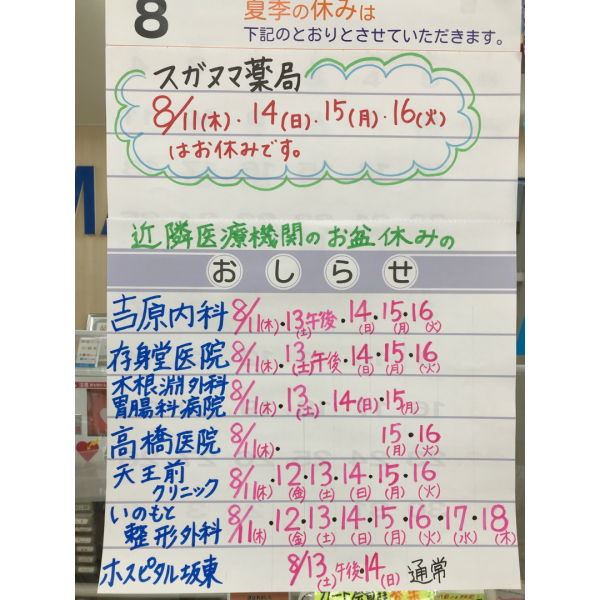 8
夏季の休みは
下記のとおりとさせていただきます。
スガヌマ薬局
8/11(木)・14(日)・15(月)・16(火)
はお休みです。
近隣医療機関のお盆休みの
おしらせ
吉原内科 8/11(木)・13(土)午後・14(日)・15(月)・16(火)
存身堂医院 8/11(木)・13(土)午後・14(日)・15(月)・16(火)
木根淵外科
胃腸科病院 8/11(木)・13(土)・14(日)・15(月)
高橋医院 8/11(木)・15(月)・16(火)
天王前
クリニック 8/11(木)・12(金)・13(土)・14(日)・15(月)・16(火)
いのもと
整形外科 8/11(木)・12(金)・13(土)・14(日)・15(月)・16(火)・17(水)・18(木)
ホスピタル坂東 8/13(土)午後・14(日) 通常